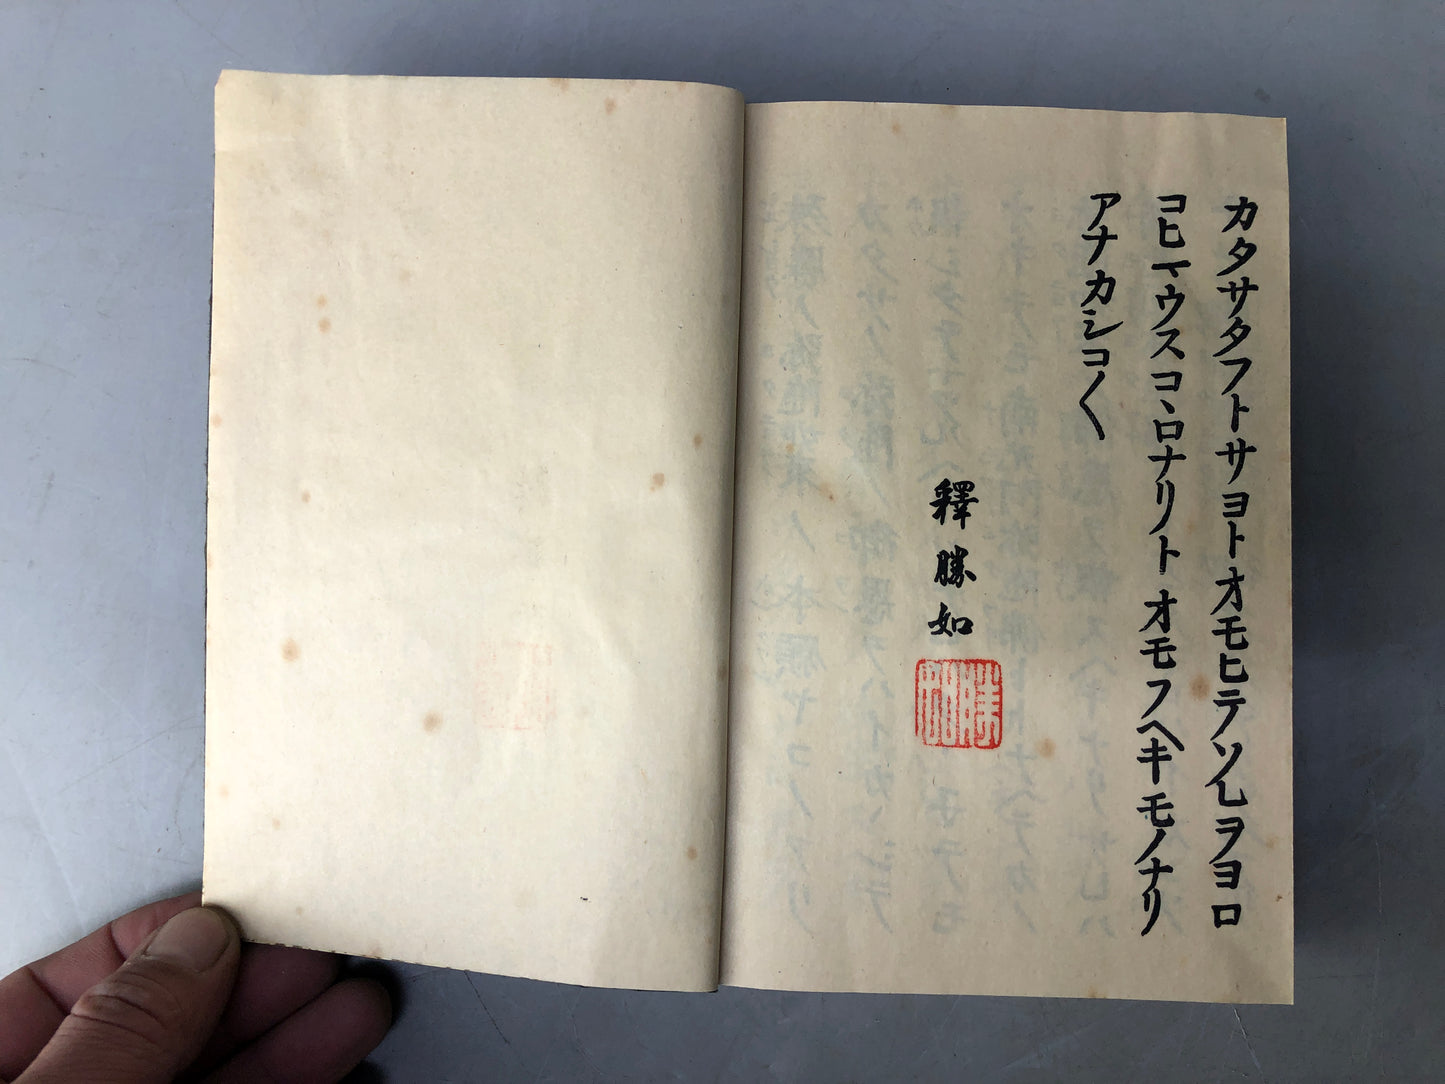 カタサタフトサヨトオモヒテソレヲヨロ
コヒマウスコヽロナリトオモフヘキモノナリ
アナカシコ〱
釋勝如
勝如